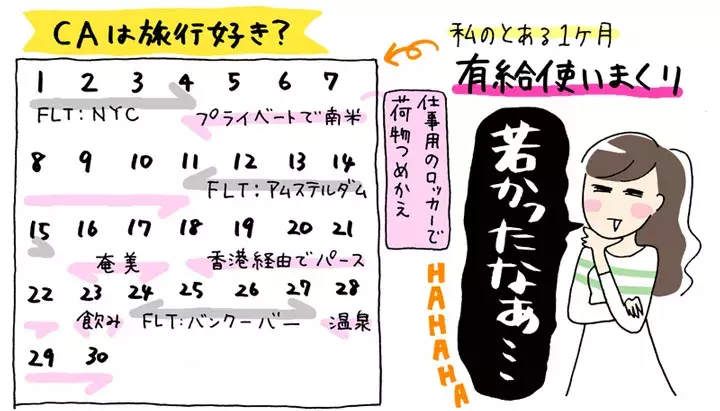 CAは旅行好き?
私のとある1ヶ月
有給使いまくり
1 2 3 4 5 6 7
FLT:NYC プライベートで南米
仕事用のロッカーで
荷物つめかえ
8 9 10 11 12 13 14
FLT:アムステルダム
15 16 17 18 19 20 21
奄美 香港経由でパース
22 23 24 25 26 27 28
飲み FLT:バンクーバー 温泉
29 30
若かったなぁ…
HAHAHA